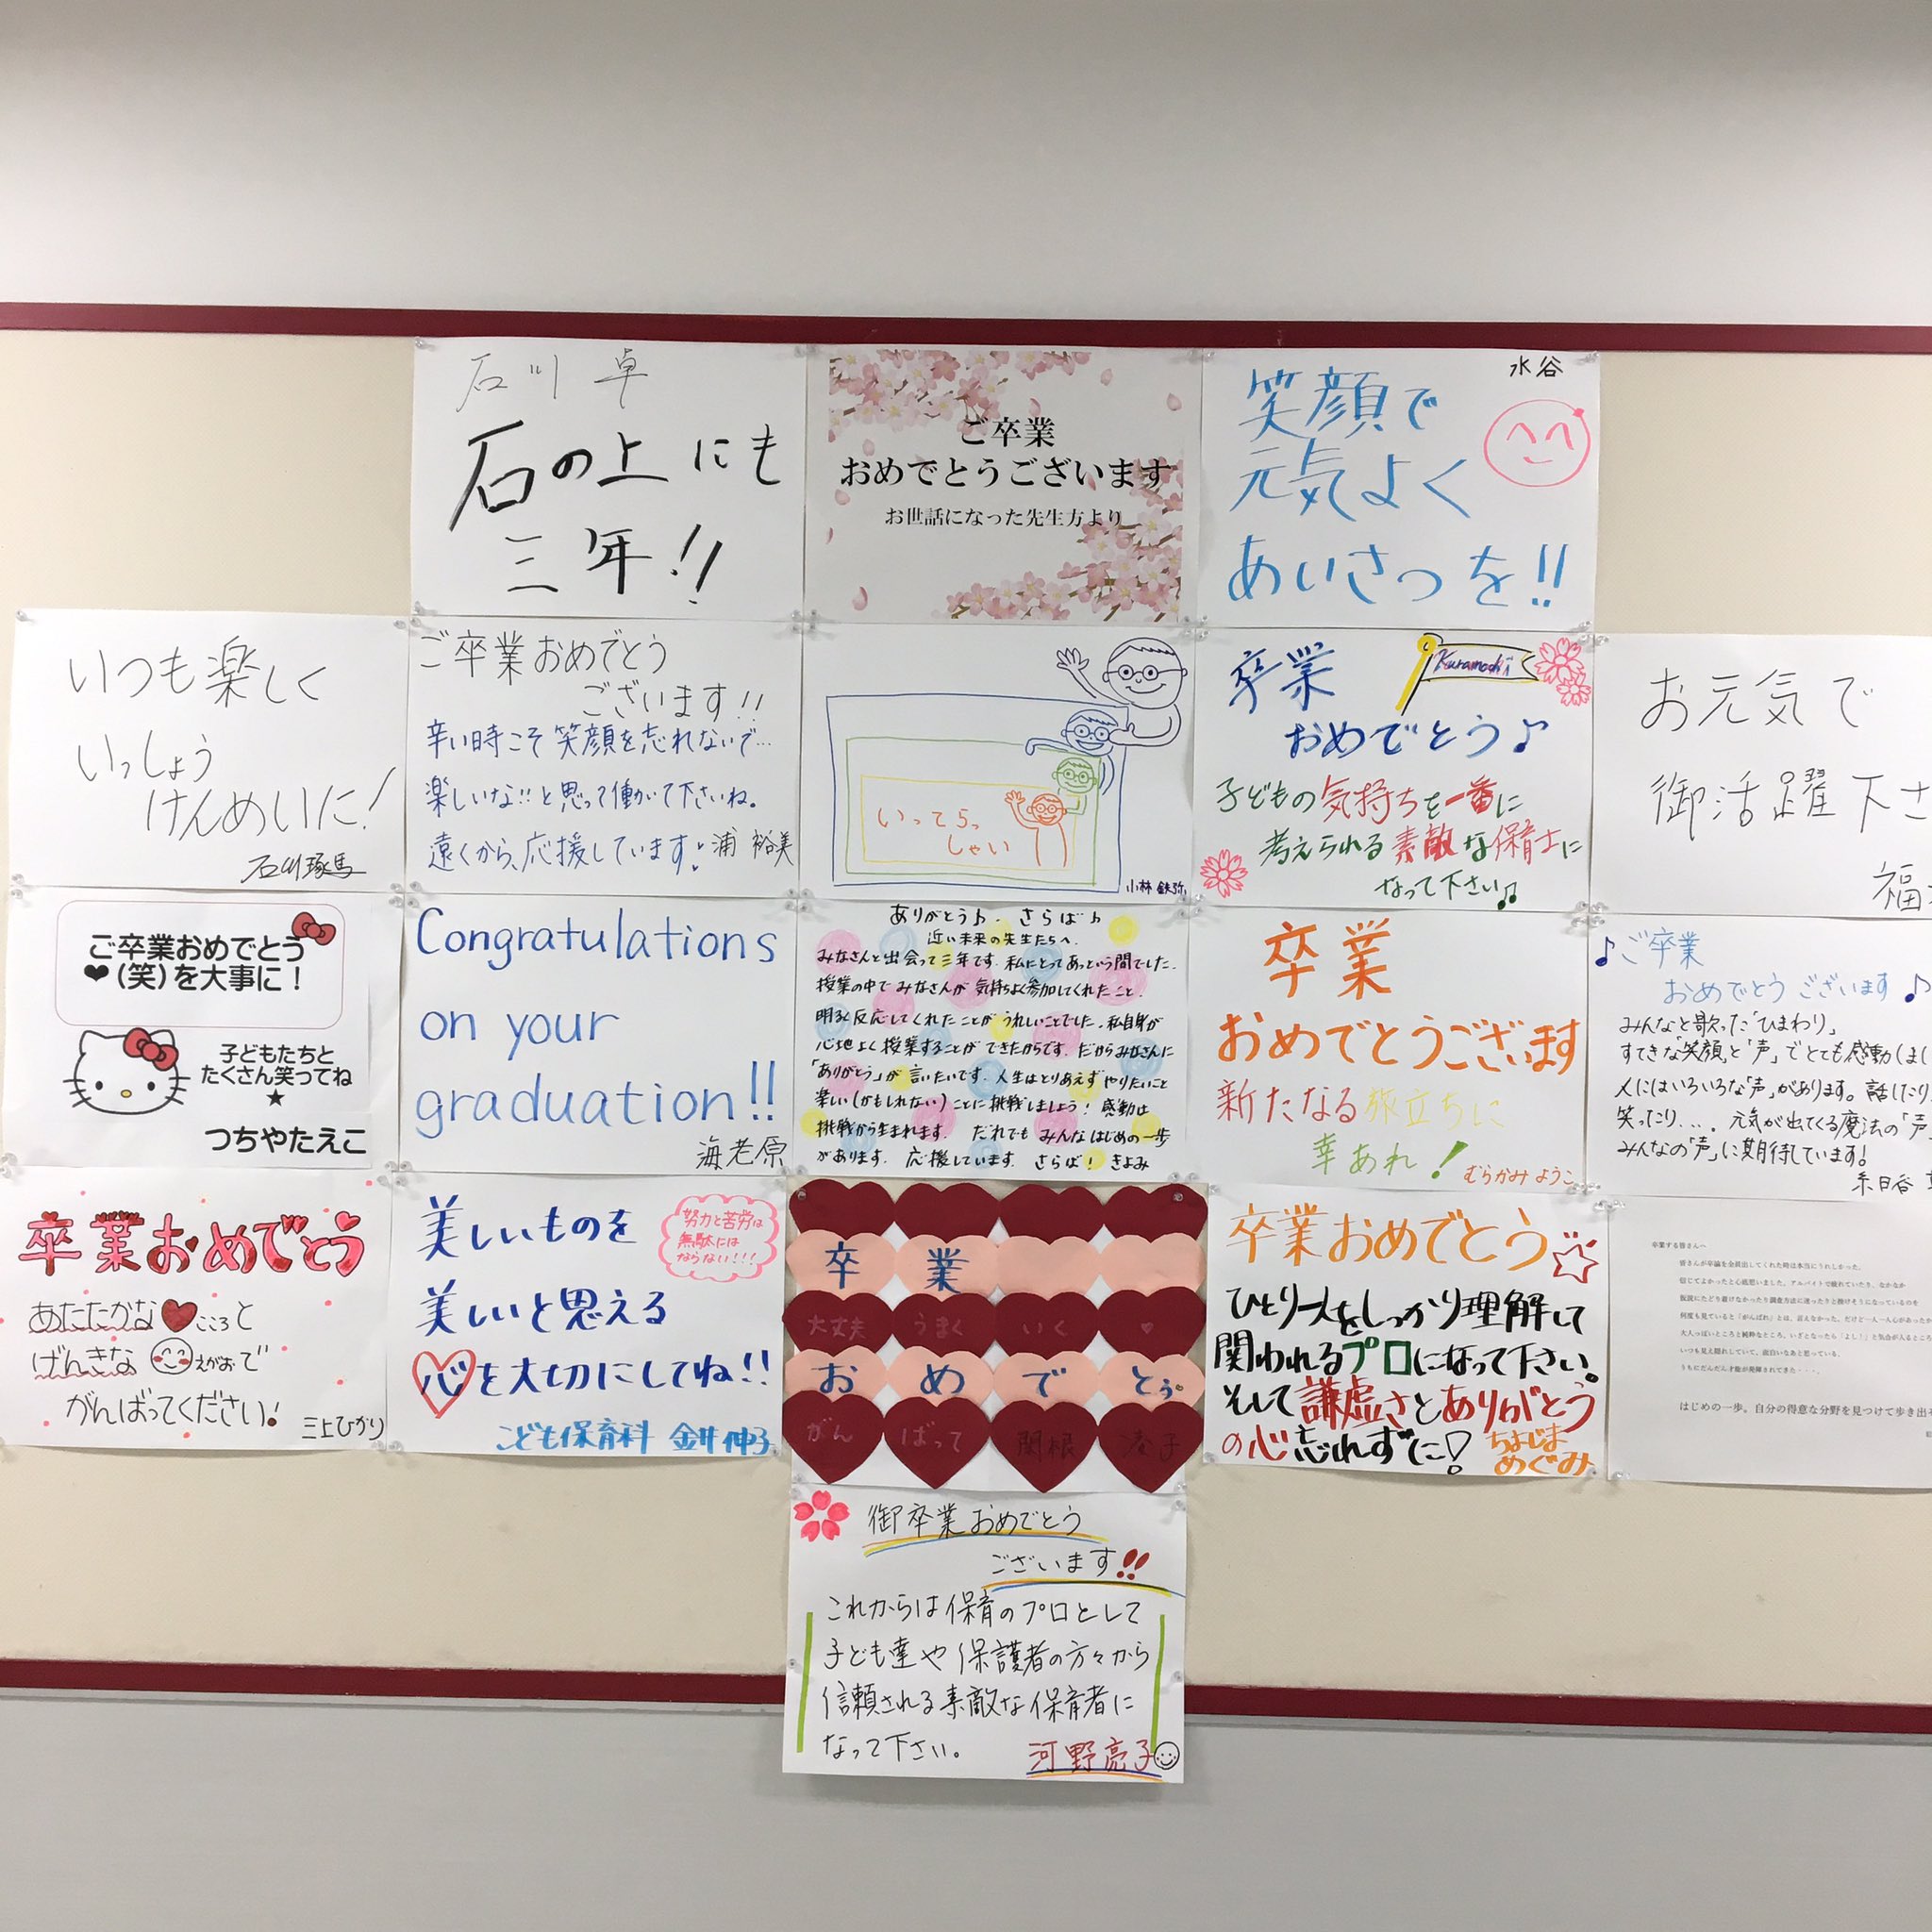 石川 卓
石の上にも
三年!!
ご卒業
おめでとうございます
お世話になった先生方より
水谷
笑顔で
元気よく
あいさつを!!
いつも楽しく
いっしょう
けんめいに!
石川琢馬
ご卒業おめでとう
ございます!!
辛い時こそ笑顔を忘れないで…
楽しいな!!と思って働いて下さいね。
遠くから、応援しています!
浦 裕美
いってらっ
しゃい
小林 鉄弥
Kuramochi
卒業
おめでとう♪
子どもの気持ちを一番に
考えられる素敵な保育士に
なって下さい♫
お元気で
御活躍下さ
福
ご卒業おめでとう
❤(笑)を大事に!
子どもたちと
たくさん笑ってね
★
つちやたえこ
Congratulations
on your
graduation!!
海老原
ありがとう♪. さらば♪
近い未来の先生たちへ.
みなさんと出会って三年です. 私にとってあっという間でした.
授業の中でみなさんが 気持ちよく参加してくれたこと.
明るく反応してくれたことが うれしいことでした. 私自身が
心地よく授業することが できたからです. だからみなさんに
「ありがとう」が 言いたいです. 人生はとりあえず やりたいこと
楽しい(かもしれない)ことに挑戦しましょう! 感動は
挑戦から生まれます. だれでも みんな はじめの一歩
があります. 応援しています. さらば! きよみ
卒業
おめでとうございます
新たなる旅立ちに
幸あれ!
むらかみ ようこ
♪ご卒業
おめでとう ございます♪
みんなと歌った「ひまわり」
すてきな「笑顔」と「声」でとても感動しまし
人にはいろいろな「声」があります。話したり、
笑ったり、... 元気が出てくる魔法の「声
みんなの「声」に期待しています!
卒業おめでとう
あたたかな❤こころと
げんきな えがおで
がんばってください!
三上ひかり
美しいものを
美しいと思える
心を大切にしてね!!
努力と苦労は
無駄には
ならない!!!
こども保育科 金井伸子
卒業
大丈夫 うまく いく ♥
おめでとう。
がん ばって 関根
卒業おめでとう
ひとり一人をしっかり理解して
関われるプロになって下さい。
そして謙虚さとありがとう
の心忘れずに!
ちよじま
めぐみ
卒業する皆さんへ
皆さんが卒論を全員出してくれた時は本当にうれしかった。
はじめの一歩。自分の得意な分野を見つけて歩き出
御卒業おめでとう
ございます!!
これからは保育のプロとして
子ども達や保護者の方々から
信頼される素敵な保育者に
なって下さい。
河野亮子